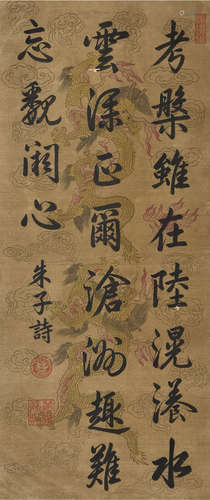 考槃雖在陸滉瀁水
雲深正爾滄洲趣難
忘觀闕心
朱子詩